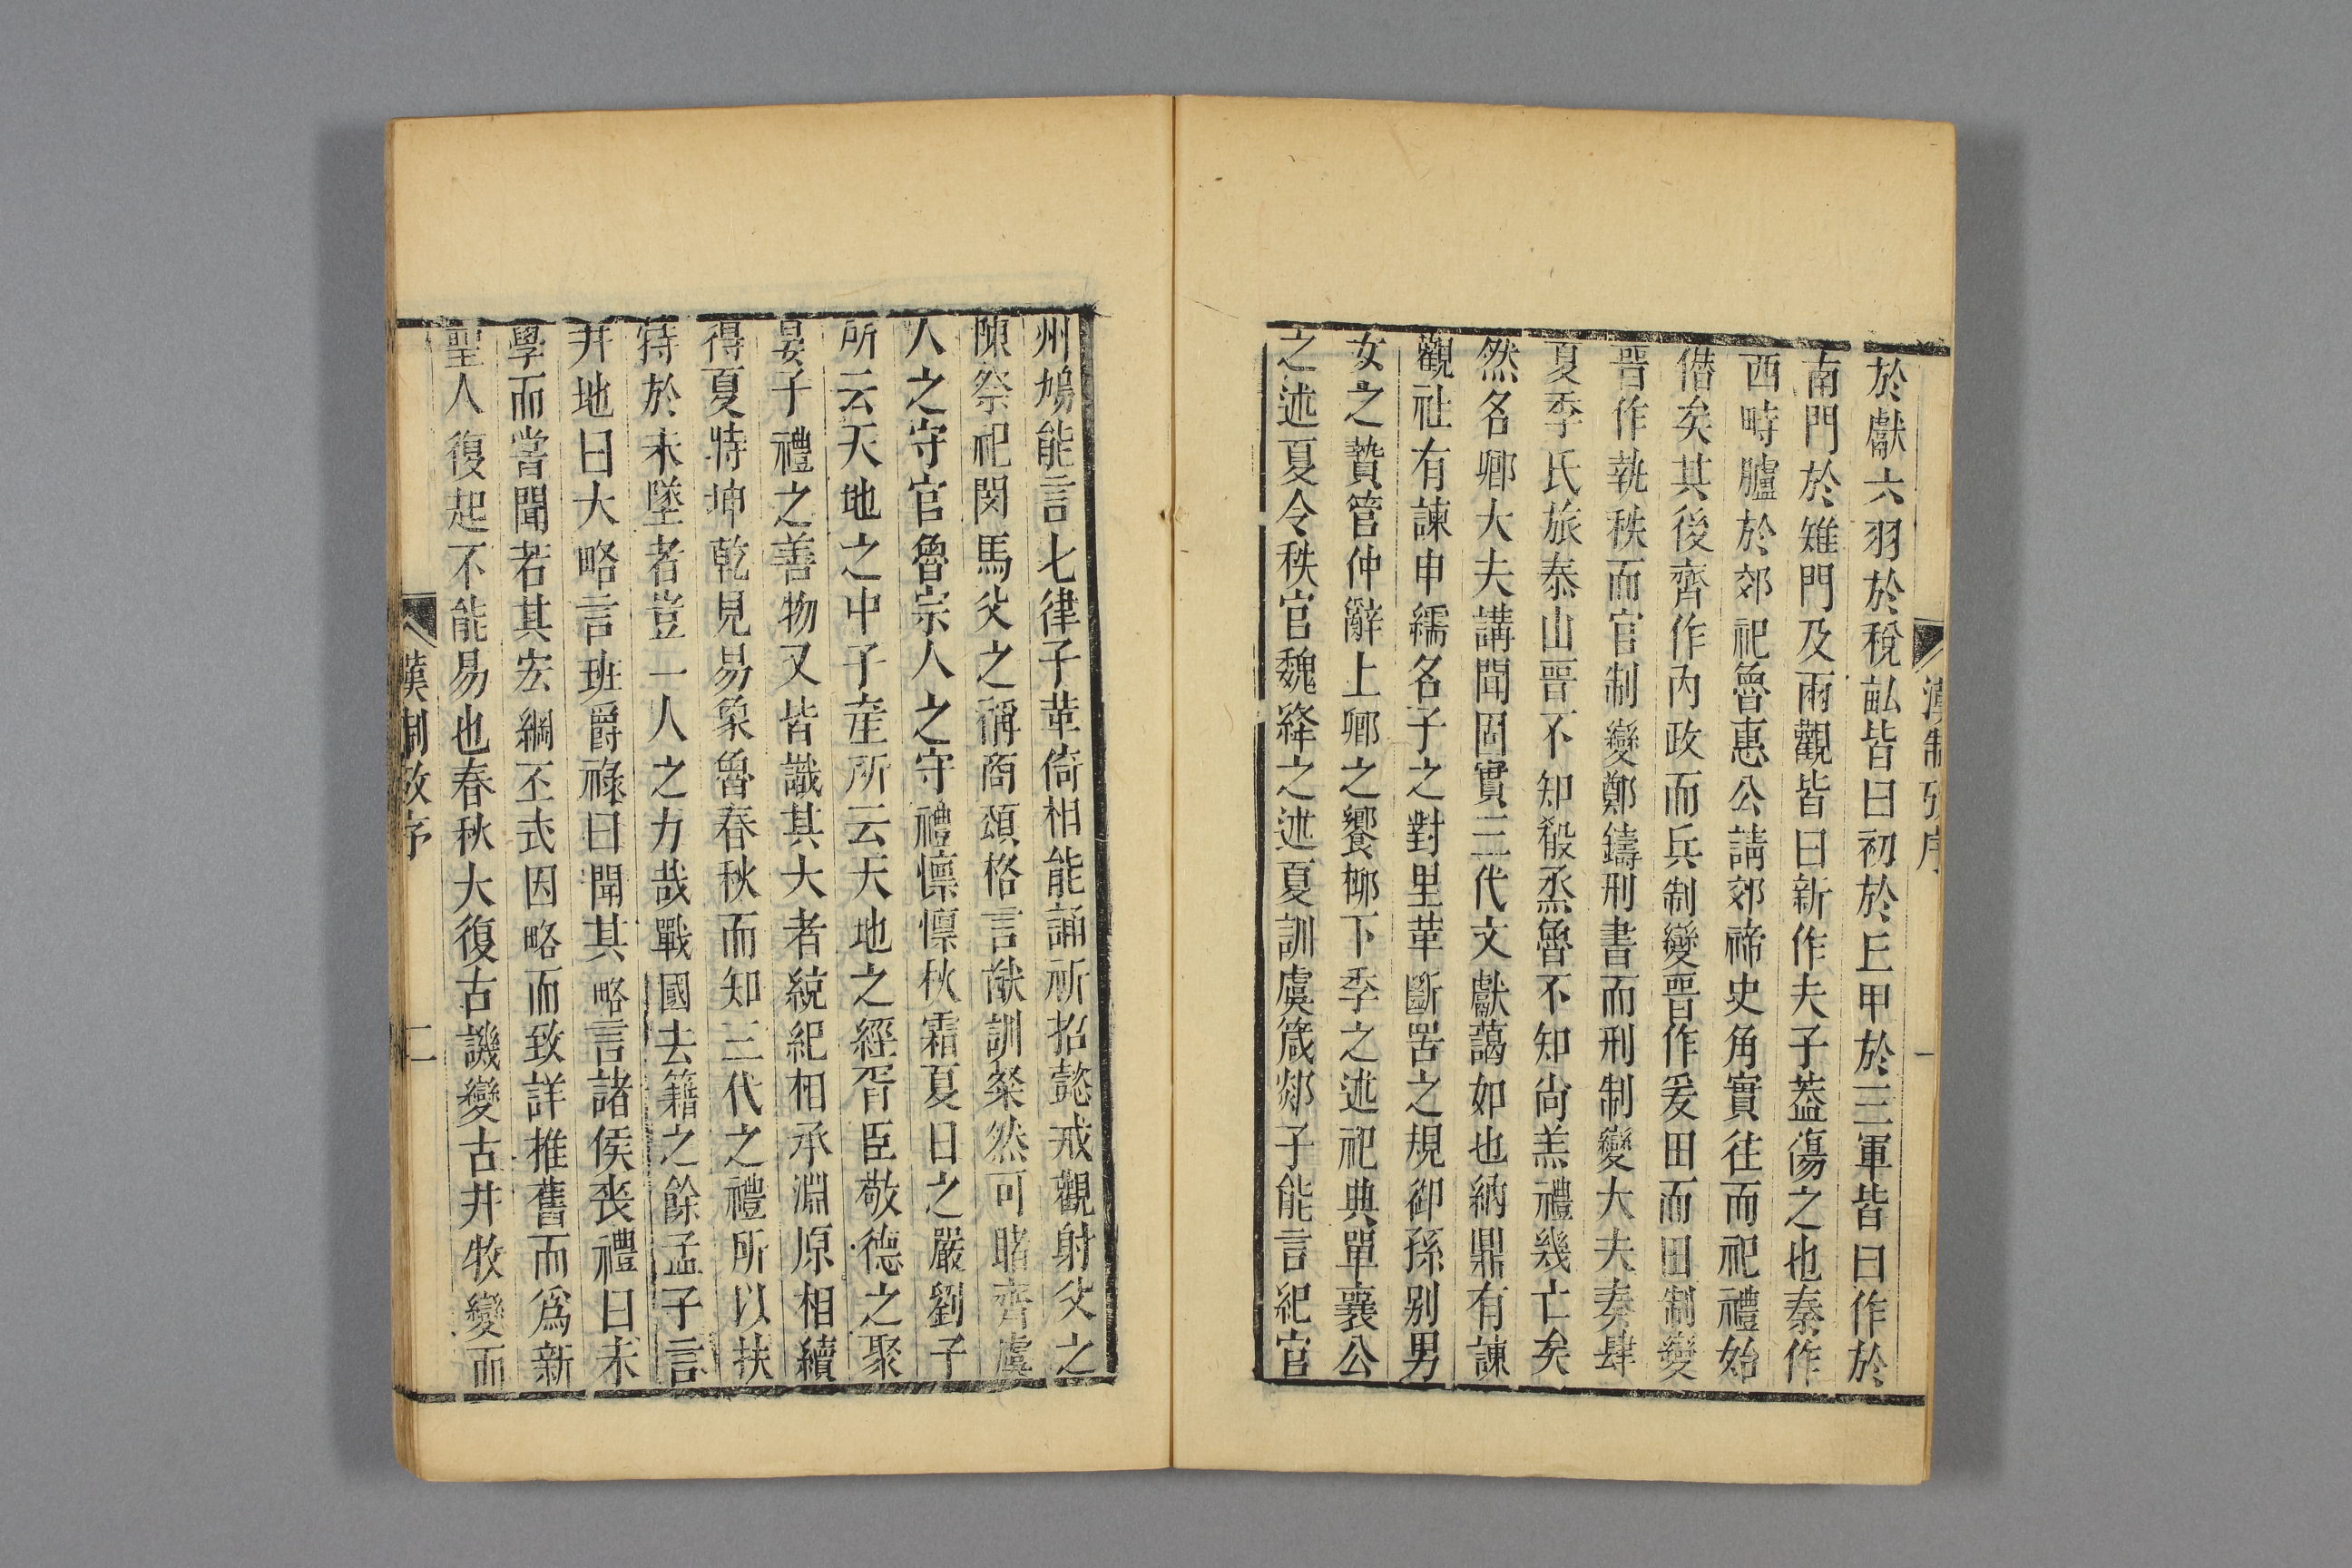 漢制攷序
一
於獻六羽於稅畝皆曰初於丘甲於三軍皆曰作於
南門於雉門及兩觀皆曰新作夫子蓋傷之也秦作
西畤臚於郊祀魯惠公請郊禘史角實往而祀禮始
僭矣其後齊作内政而兵制變晉作爰田而田制變
晉作執秩而官制變鄭鑄刑書而刑制變大夫奏肆
夏季氏旅泰山晉不知殽烝魯不知尚羔禮幾亡矣
然名卿大夫講聞固實三代文獻藹如也納鼎有諫
觀社有諫申繻名子之對里革斷罟之規御孫别男
女之贄管仲辭上卿之饗桺下季之述祀典單襄公
之述夏令秩官魏絳之述夏訓虞箴郯子能言紀官
州鳩能言七律子革倚相能誦祈招懿戒觀射父之
陳祭祀閔馬父之稱商頌格言猷訓粲然可睹齊虞
人之守官魯宗人之守禮懍懍秋霜夏日之嚴劉子
所云天地之中子産所云天地之經胥臣敬德之聚
晏子禮之善物又皆識其大者統紀相承淵原相續
得夏時坤乾見易象魯春秋而知三代之禮所以扶
持於未墜者豈一人之力哉戰國去籍之餘孟子言
井地曰大略言班爵祿曰聞其略言諸侯喪禮曰未
學而嘗聞若其宏綱丕式因略而致詳推舊而爲新
聖人復起不能易也春秋大復古譏變古井牧變而
漢制攷序
二